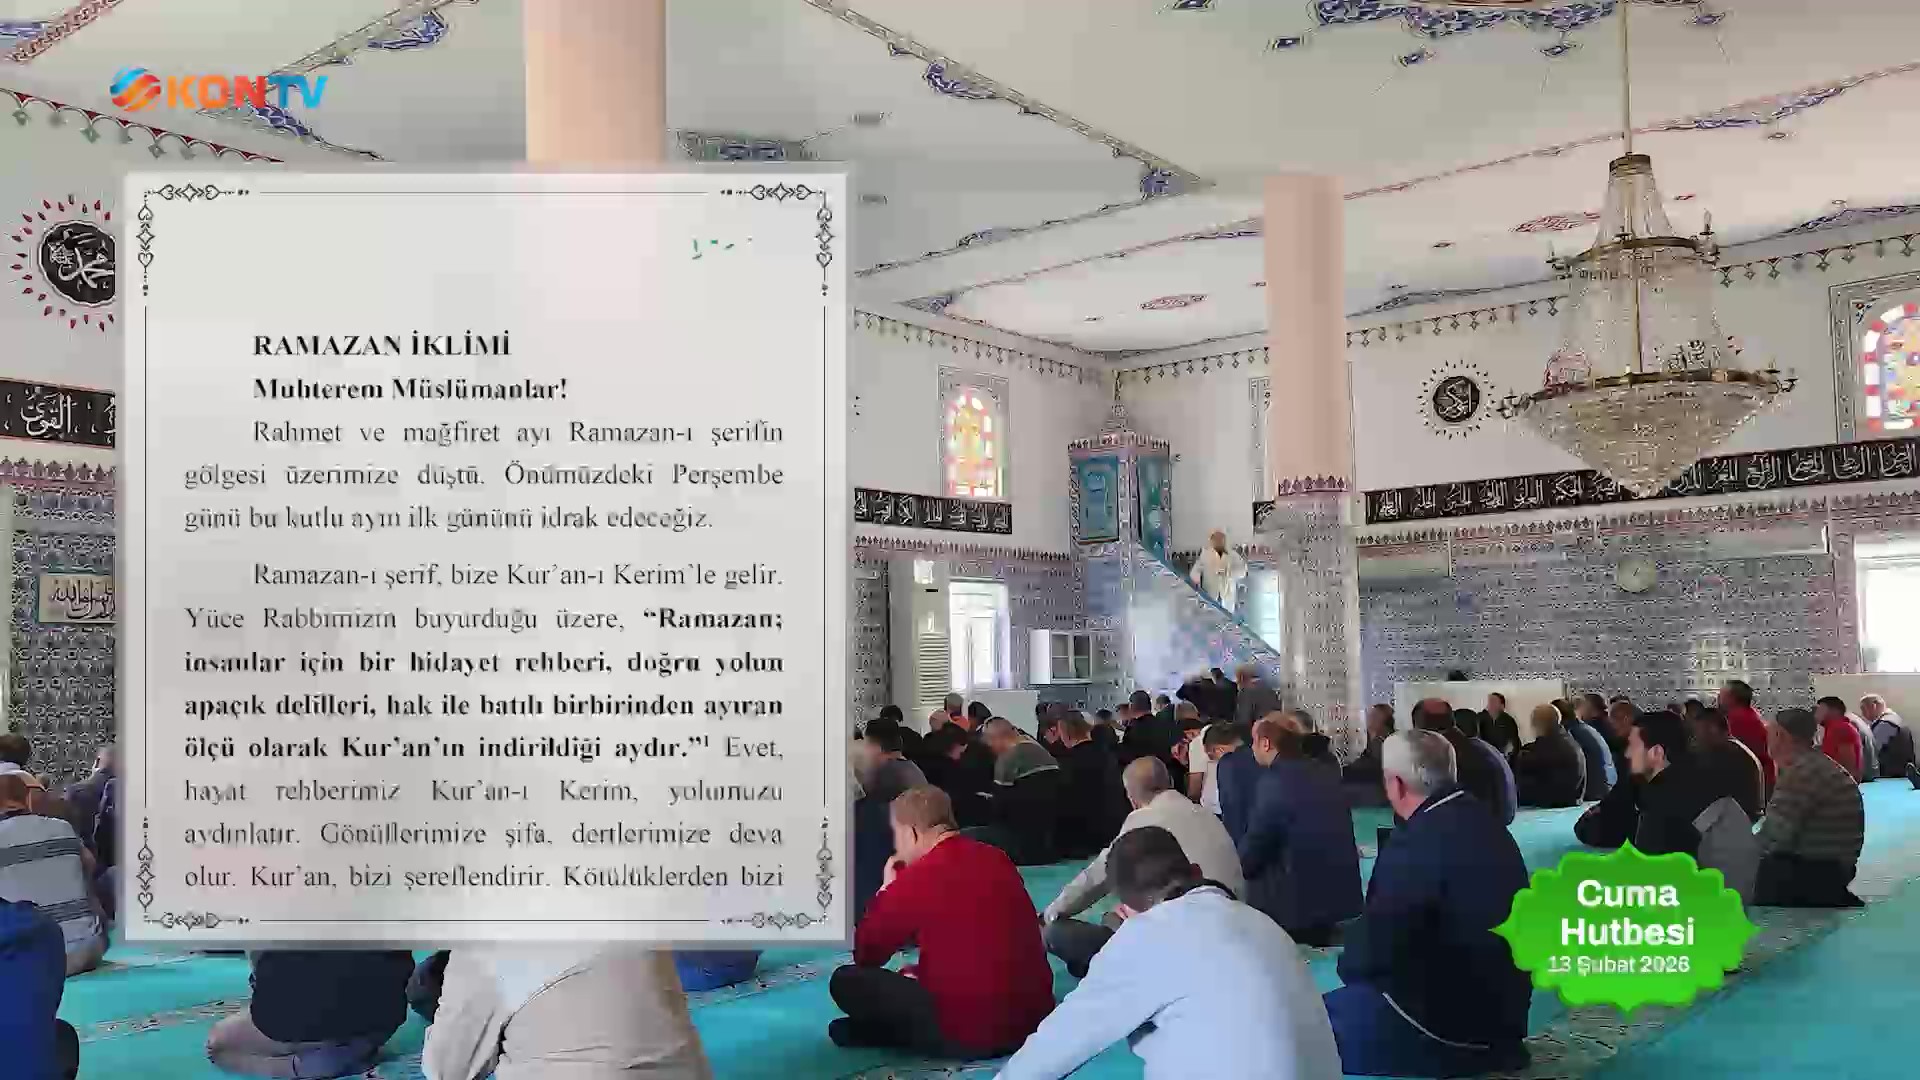 KONTV
RAMAZAN İKLİMİ
Muhterem Müslümanlar!
Rahmet ve mağfiret ayı Ramazan-ı şerifin
gölgesi üzerimize düştü. Önümüzdeki Perşembe
günü bu kutlu ayın ilk gününü idrak edeceğiz.
Ramazan-ı şerif, bize Kur’an-ı Kerim`le gelir.
Yüce Rabbimizin buyurduğu üzere, “Ramazan;
insanlar için bir hidayet rehberi, doğru yolun
apaçık delilleri, hak ile batılı birbirinden ayıran
ölçü olarak Kur’an’ın indirildiği aydır.”¹ Evet,
hayat rehberimiz Kur’an-ı Kerim, yolumuzu
aydınlatır. Gönüllerimize şifa, dertlerimize deva
olur. Kur’an, bizi şereflendirir. Kötülüklerden bizi
Cuma
Hutbesi
13 Şubat 2026
محمد
القوي